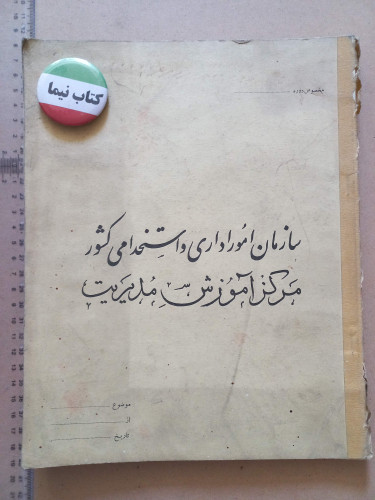 مخصوص دوره
کتاب نیما
سازمان امور اداری و استخدامی کشور
مرکز آموزش مدیریت
موضوع
از
تاریخ